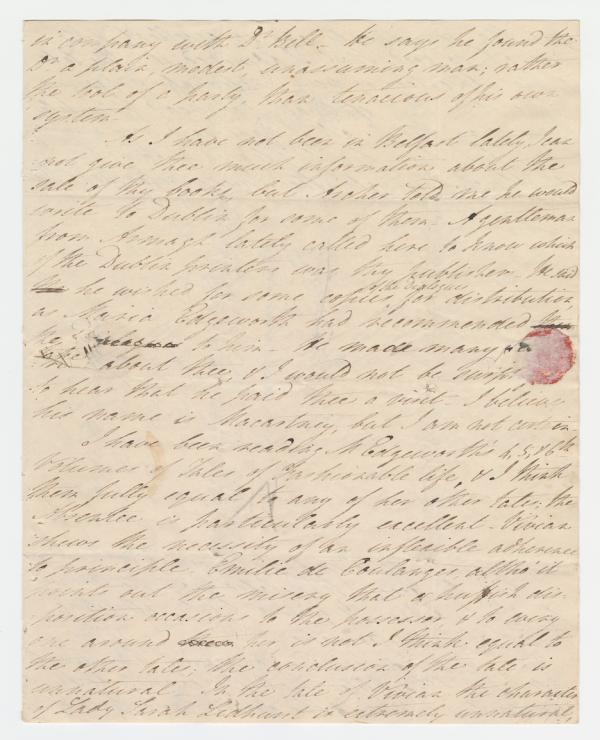 in company with Dr Bell - He says he found the
Dr a plain, modest, unassuming man; rather
the tool of a party, than tenacious of his own
system -
As I have not been in Belfast lately, I can
not give thee much information about the
sale of thy books, but Archer told me he would
write to Dublin for some of them - A gentleman
from Armagh lately called here to know which
of the Dublin printers was thy publisher. He said
he wished for some copies of the Dialogues for distribution
as Maria Edgeworth had recommended
to him - He made many
about thee, & I would not be surpr
to hear that he paid thee a visit - I believe
his name is Macartney, but I am not certain -
I have been reading M Edgeworth's 4, 5, & 6th
Volumes of Tales of Fashionable life, & I think
them fully equal to any of her other tales; the
Absentee is particularly excellent - Vivian
shews the necessity of an inflexible adherence
to principle. Emilie de Coulanges altho' it
points out the misery that a huffish dis-
position occasions to the possessor, & to every
one around her is not I think equal to
the other tales; the conclusion of the tale is
unnatural In the tale of Vivian the character
of Lady Sarah Lidhurst is extremely unnatural,